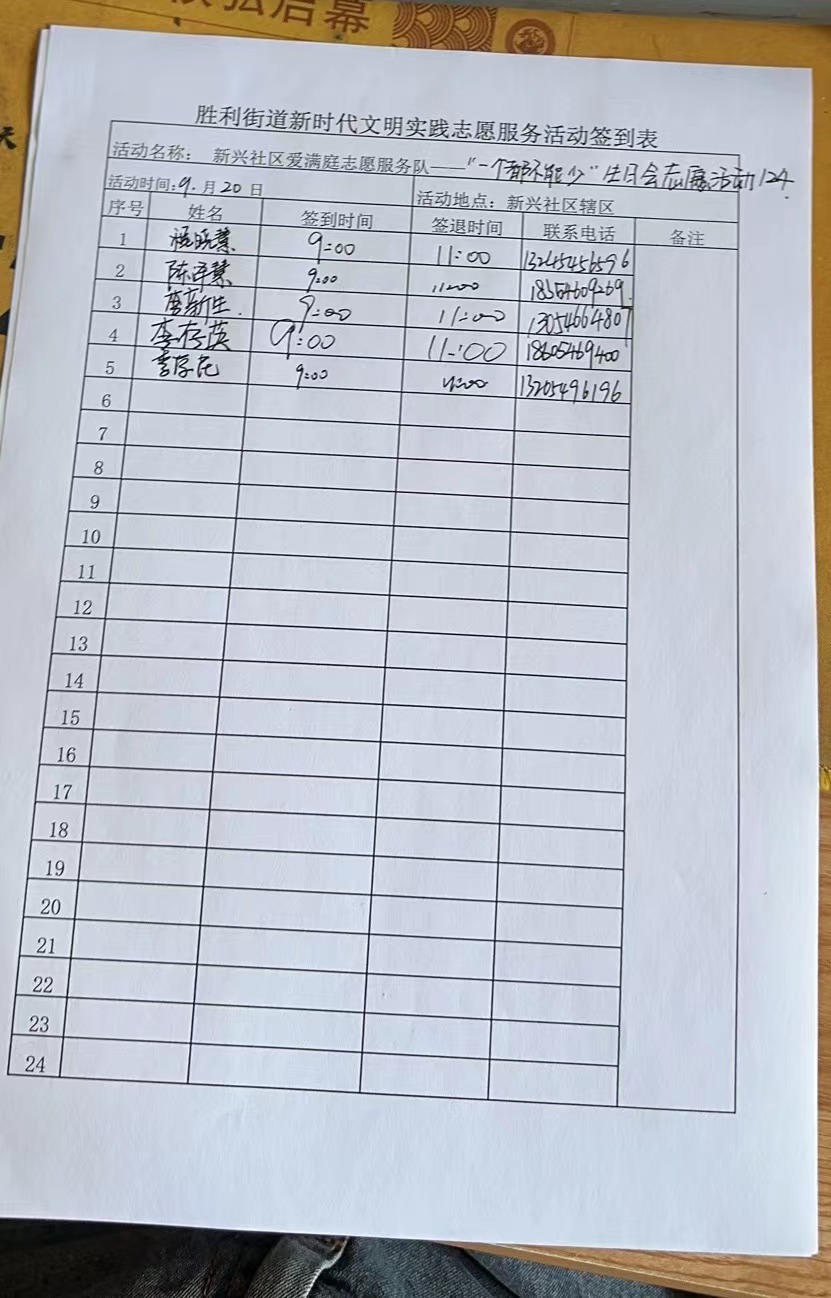 启幕
胜利街道新时代文明实践志愿服务活动签到表
活动名称： 新兴社区爱满庭志愿服务队——"一个都不能少"生日会志愿活动124.
活动时间:9.月20日 活动地点：新兴社区辖区
序号 姓名 签到时间 签退时间 联系电话 备注
1 晓慧 9:00 11:00 13245456596
2 陈泽慧 9:00 11:00 18554609269.
3 唐新生. 9:00 11:00 13054664807
4 李存英 9:00 11:00 18605469400
5 李存花 9:00 11:00 13205496196
6
7
8
9
10
11
12
13
14
15
16
17
18
19
20
21
22
23
24